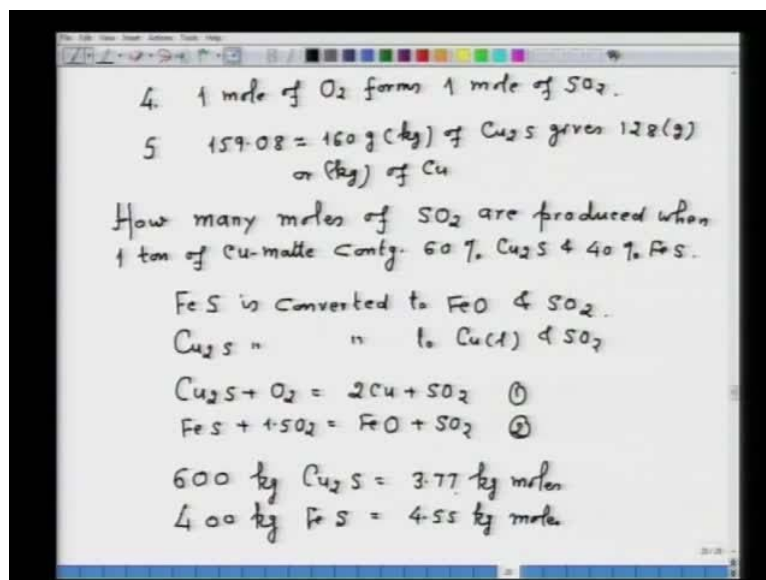 File Edit View Insert Actions Tools Help
4. 1 mole of O2 forms 1 mole of SO2.
5 159.08 = 160 g (kg) of Cu2S gives 128 (g)
or (kg) of Cu
How many moles of SO2 are produced when
1 ton of Cu-matte Contg. 60 % Cu2S & 40 % FeS.
FeS is Converted to FeO & SO2.
Cu2S " " to Cu(l) & SO2
Cu2S + O2 = 2Cu + SO2 ①
FeS + 1.5O2 = FeO + SO2 ②
600 kg Cu2S = 3.77 kg moles
400 kg FeS = 4.55 kg mole.